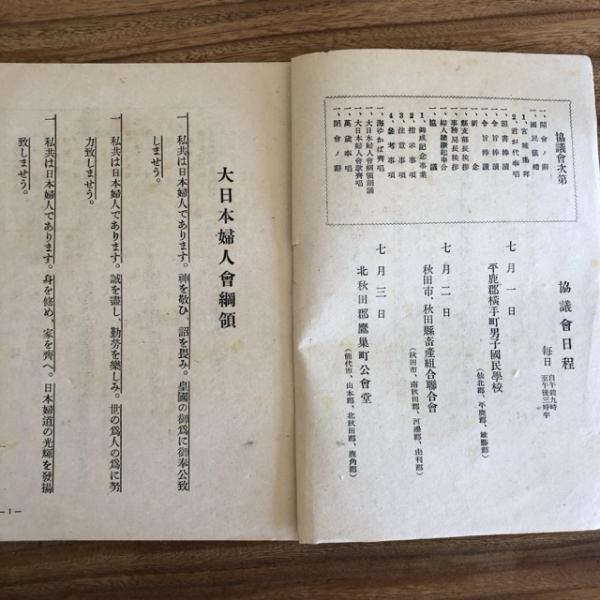 協議會次第
一、開會ノ辭
一、國民儀禮
1、宮城遙拜
2、君が代奉唱
一、詔書捧讀
一、令旨捧讀
一、令旨奉誦
一、祈念
一、縣支部長挨拶
一、事務局長挨拶
一、協議
1、御成記念事業
2、指示事項
3、注意事項
4、參考事項
一、海ゆかば齊唱
一、大日本婦人會綱領朗誦
一、大日本婦人會歌齊唱
一、萬歲奉唱
一、閉會ノ辭
協議會日程
每日 自午前九時 至午後三時半
七月一日
平鹿郡橫手町男子國民學校
(仙北郡、平鹿郡、雄勝郡)
七月二日
秋田市、秋田縣畜產組合聯合會
(秋田市、南秋田郡、河邊郡、由利郡)
七月三日
北秋田郡鷹巢町公會堂
(能代市、山本郡、北秋田郡、鹿角郡)
大日本婦人會綱領
一、私共は日本婦人であります。神を敬ひ、詔を畏み。皇國の御爲に御奉公致
しませう。
一、私共は日本婦人であります。誠を盡し、勤勞を樂しみ。世の爲人の爲に努
力致しませう。
一、私共は日本婦人であります。身を修め、家を齊へ。日本婦道の光輝を發揚
致しませう。
—1—